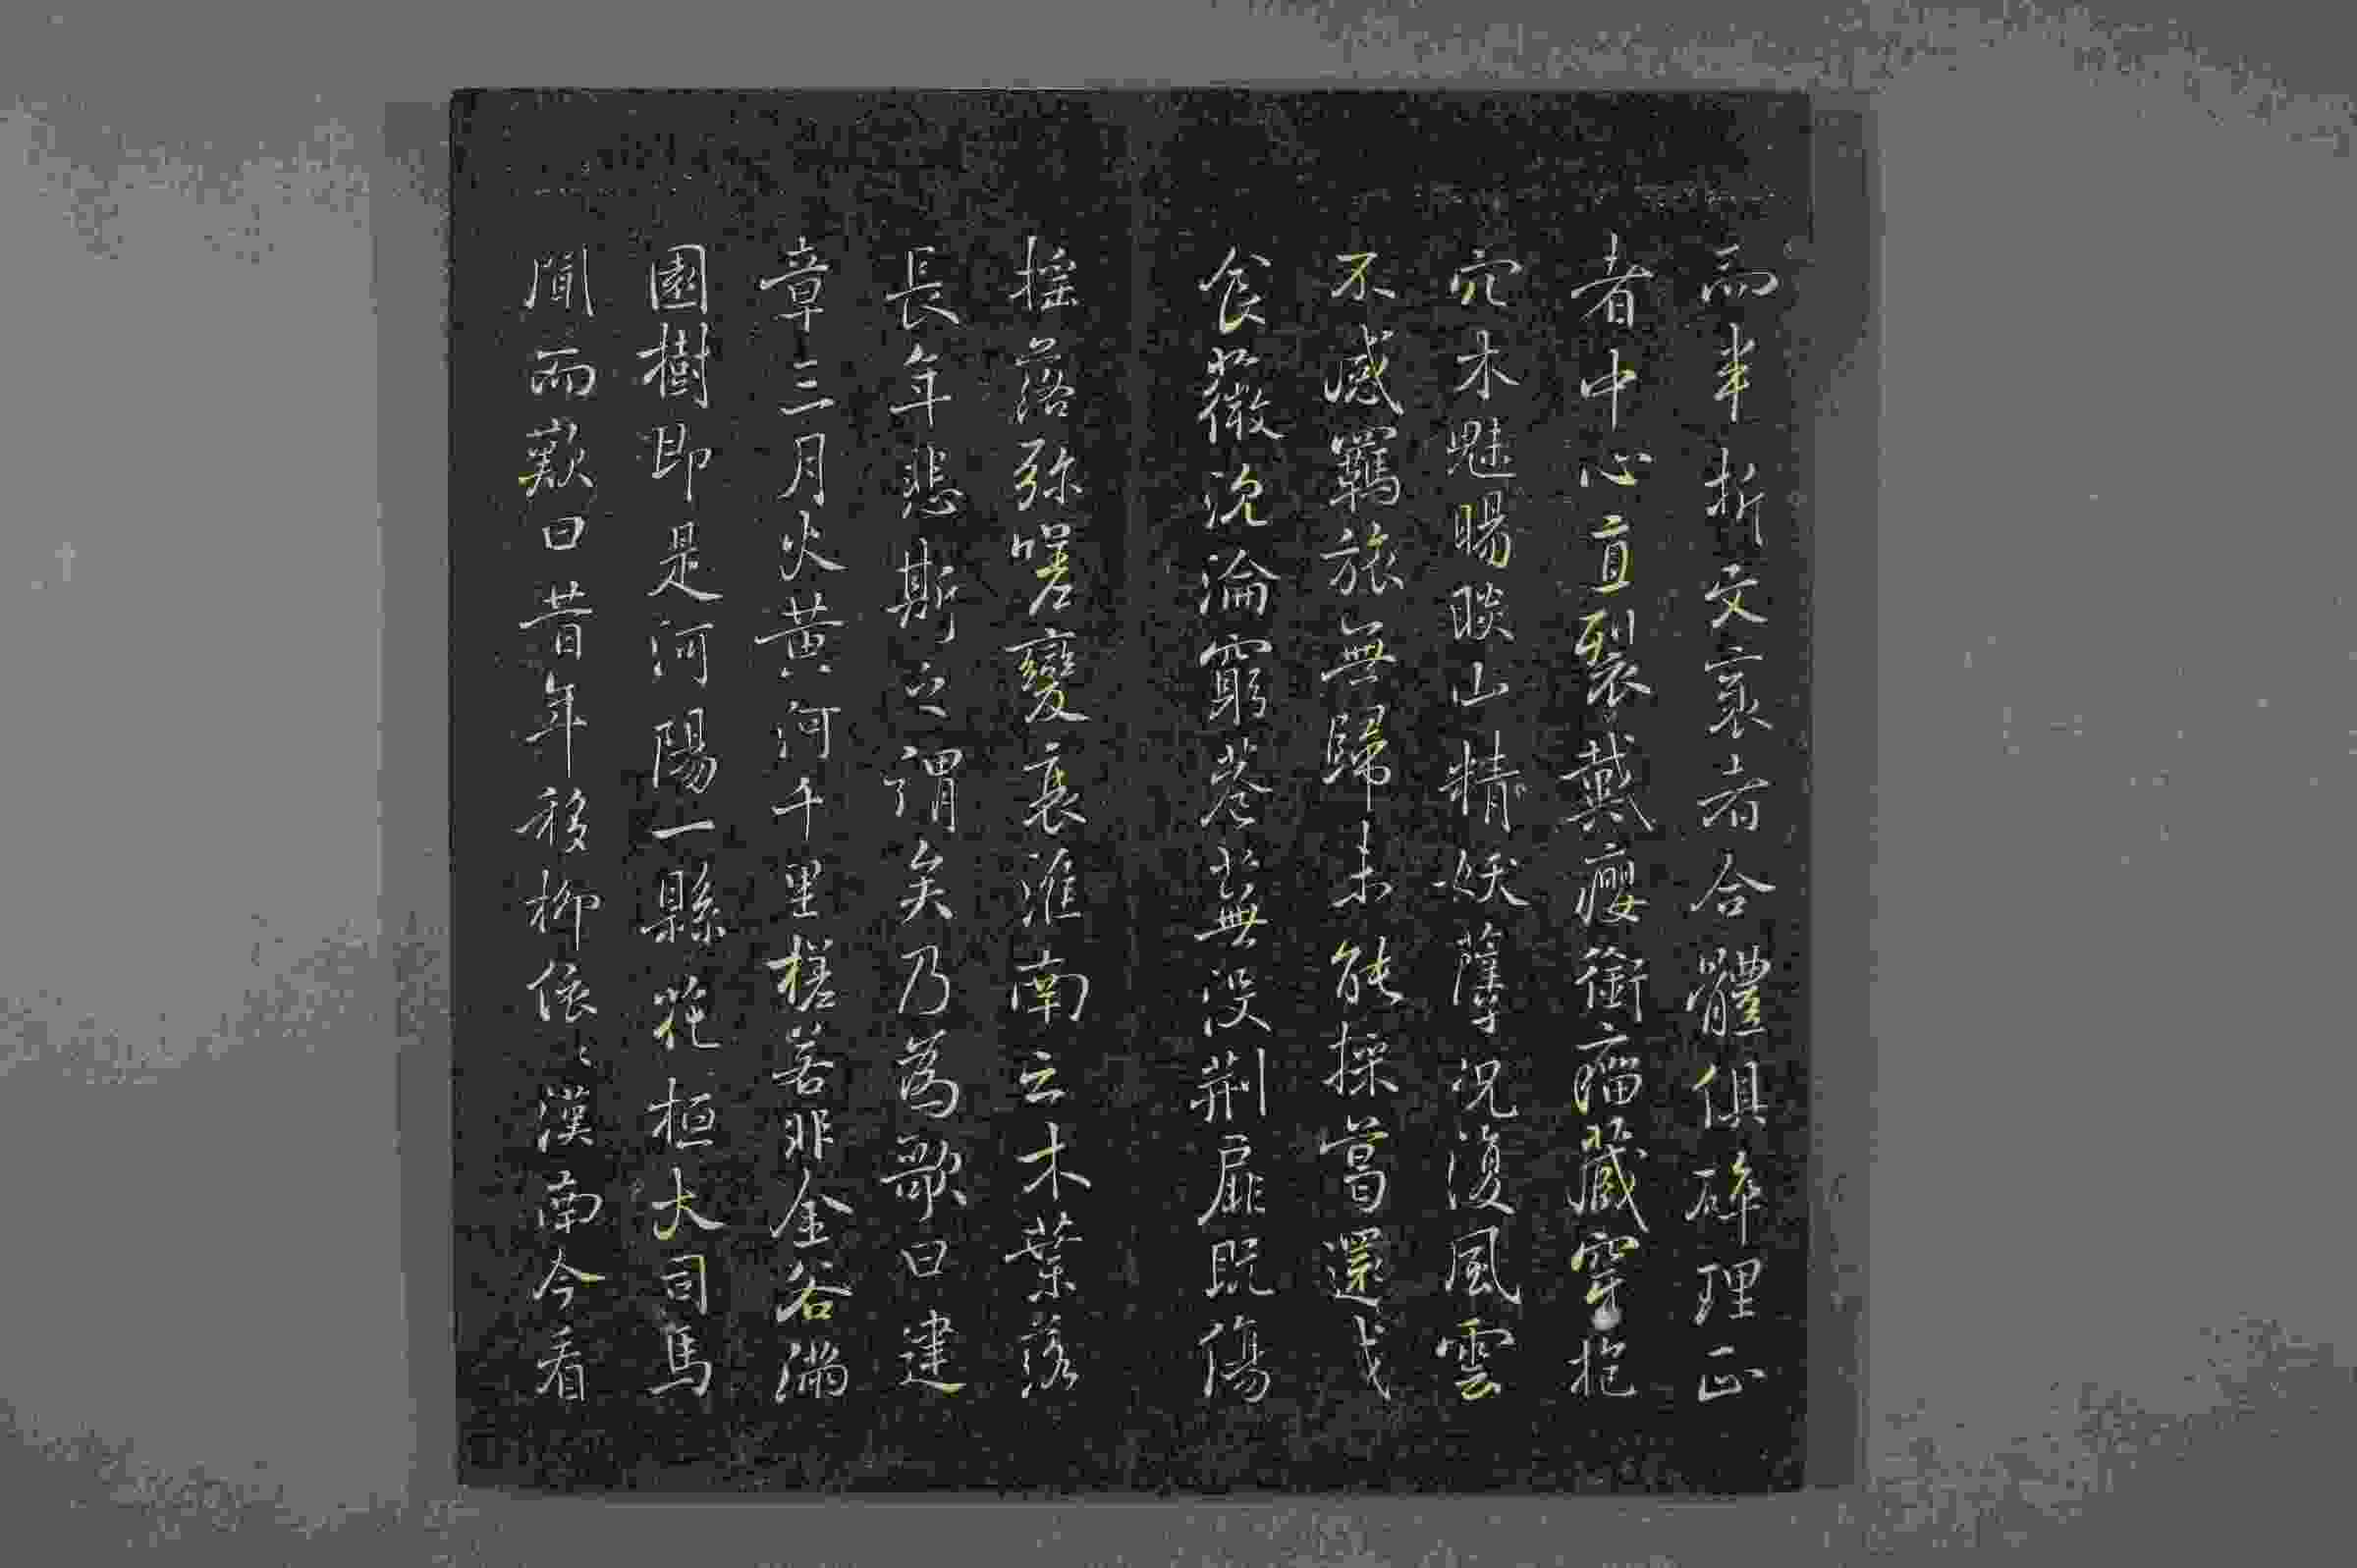 而半折文衺者合體俱碎理正
者中心直裂戴癭銜瘤藏穿抱
穴木魅睗睒山精妖孽況復風雲
不感羈旅無歸未能採葛還成
食薇沉淪窮巷蕪沒荊扉既傷
搖落弥嗟變衰淮南云木葉落
長年悲斯之謂矣乃為歌曰建
章三月火黃河千里槎若非金谷滿
園樹即是河陽一縣花桓大司馬
聞而歎曰昔年移柳依〻漢南今看